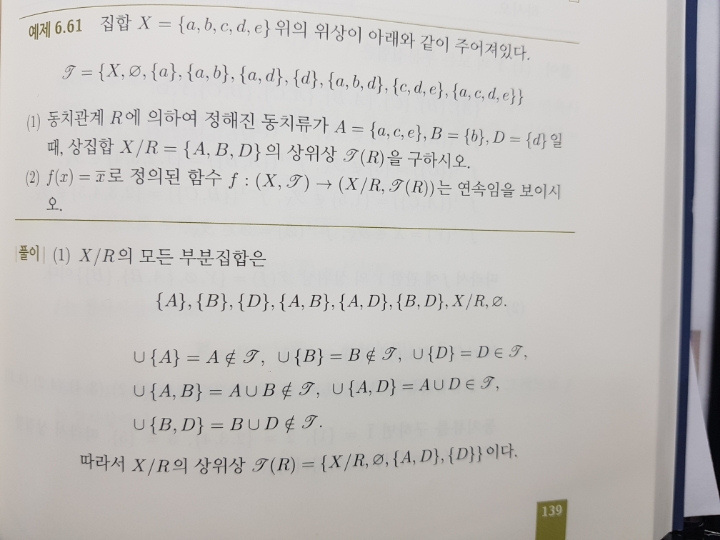 예제 6.61 집합 X = {a, b, c, d, e} 위의 위상이 아래와 같이 주어져있다.
𝒯 = {X, ∅, {a}, {a, b}, {a, d}, {d}, {a, b, d}, {c, d, e}, {a, c, d, e}}
(1) 동치관계 R에 의하여 정해진 동치류가 A = {a, c, e}, B = {b}, D = {d}일
때, 상집합 X/R = {A, B, D}의 상위상 𝒯(R)을 구하시오.
(2) f(x) = x̅로 정의된 함수 f : (X, 𝒯) → (X/R, 𝒯(R))는 연속임을 보이시
오.
풀이 (1) X/R의 모든 부분집합은
{A}, {B}, {D}, {A, B}, {A, D}, {B, D}, X/R, ∅.
∪{A} = A ∉ 𝒯, ∪{B} = B ∉ 𝒯, ∪{D} = D ∈ 𝒯,
∪{A, B} = A∪B ∉ 𝒯, ∪{A, D} = A∪D ∈ 𝒯,
∪{B, D} = B∪D ∉ 𝒯.
따라서 X/R의 상위상 𝒯(R) = {X/R, ∅, {A, D}, {D}}이다.
139